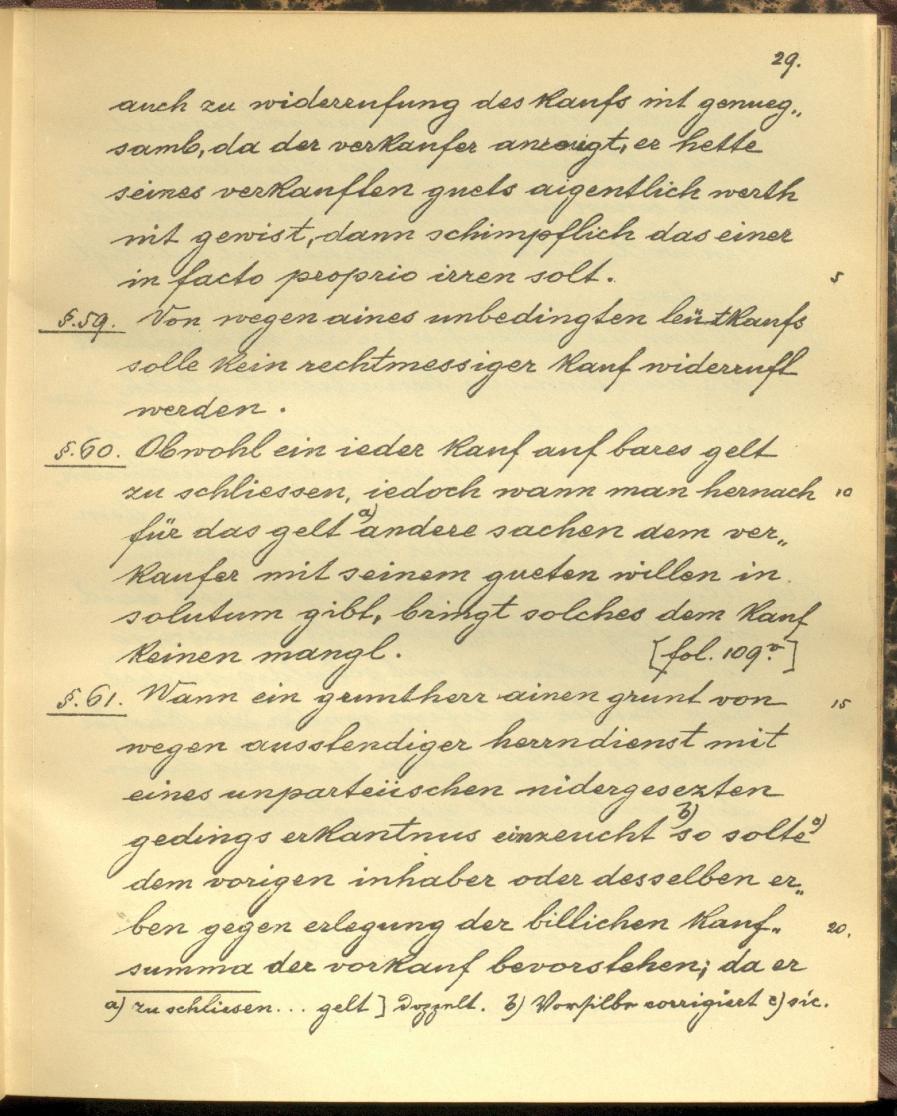 29.
auch zu widerrufung des kaufs nit genueg„
samb, da der verkaufer anzeigt, er hette
seines verkauften guets aigentlich werth
nit gewist, dann schimpflich das einer
in facto proprio irren solt. 5
§.59. Von wegen aines unbedingten leütkaufs
solle kein rechtmessiger kauf widerruft
werden.
§.60. Obwohl ein ieder kauf auf bares gelt
zu schliessen, iedoch wann man hernach 10
für das gelt a) andere sachen dem ver„
kaufer mit seinem gueten willen in
solutum gibt, bringt solches dem kauf
keinen mangl. [fol. 109v.]
§.61. Wann ein gruntherr ainen grunt von 15
wegen ausstendiger herrndienst mit
eines unparteiischen nidergesezten
gedings erkantnus einzeucht b) so solte c)
dem vorigen inhaber oder desselben er„
ben gegen erlegung der billichen kauf„ 20.
summa der vorkauf bevorstehen; da er
a) zu schliessen... gelt] doppelt. b) Vorsilbe corrigiert c) sic.